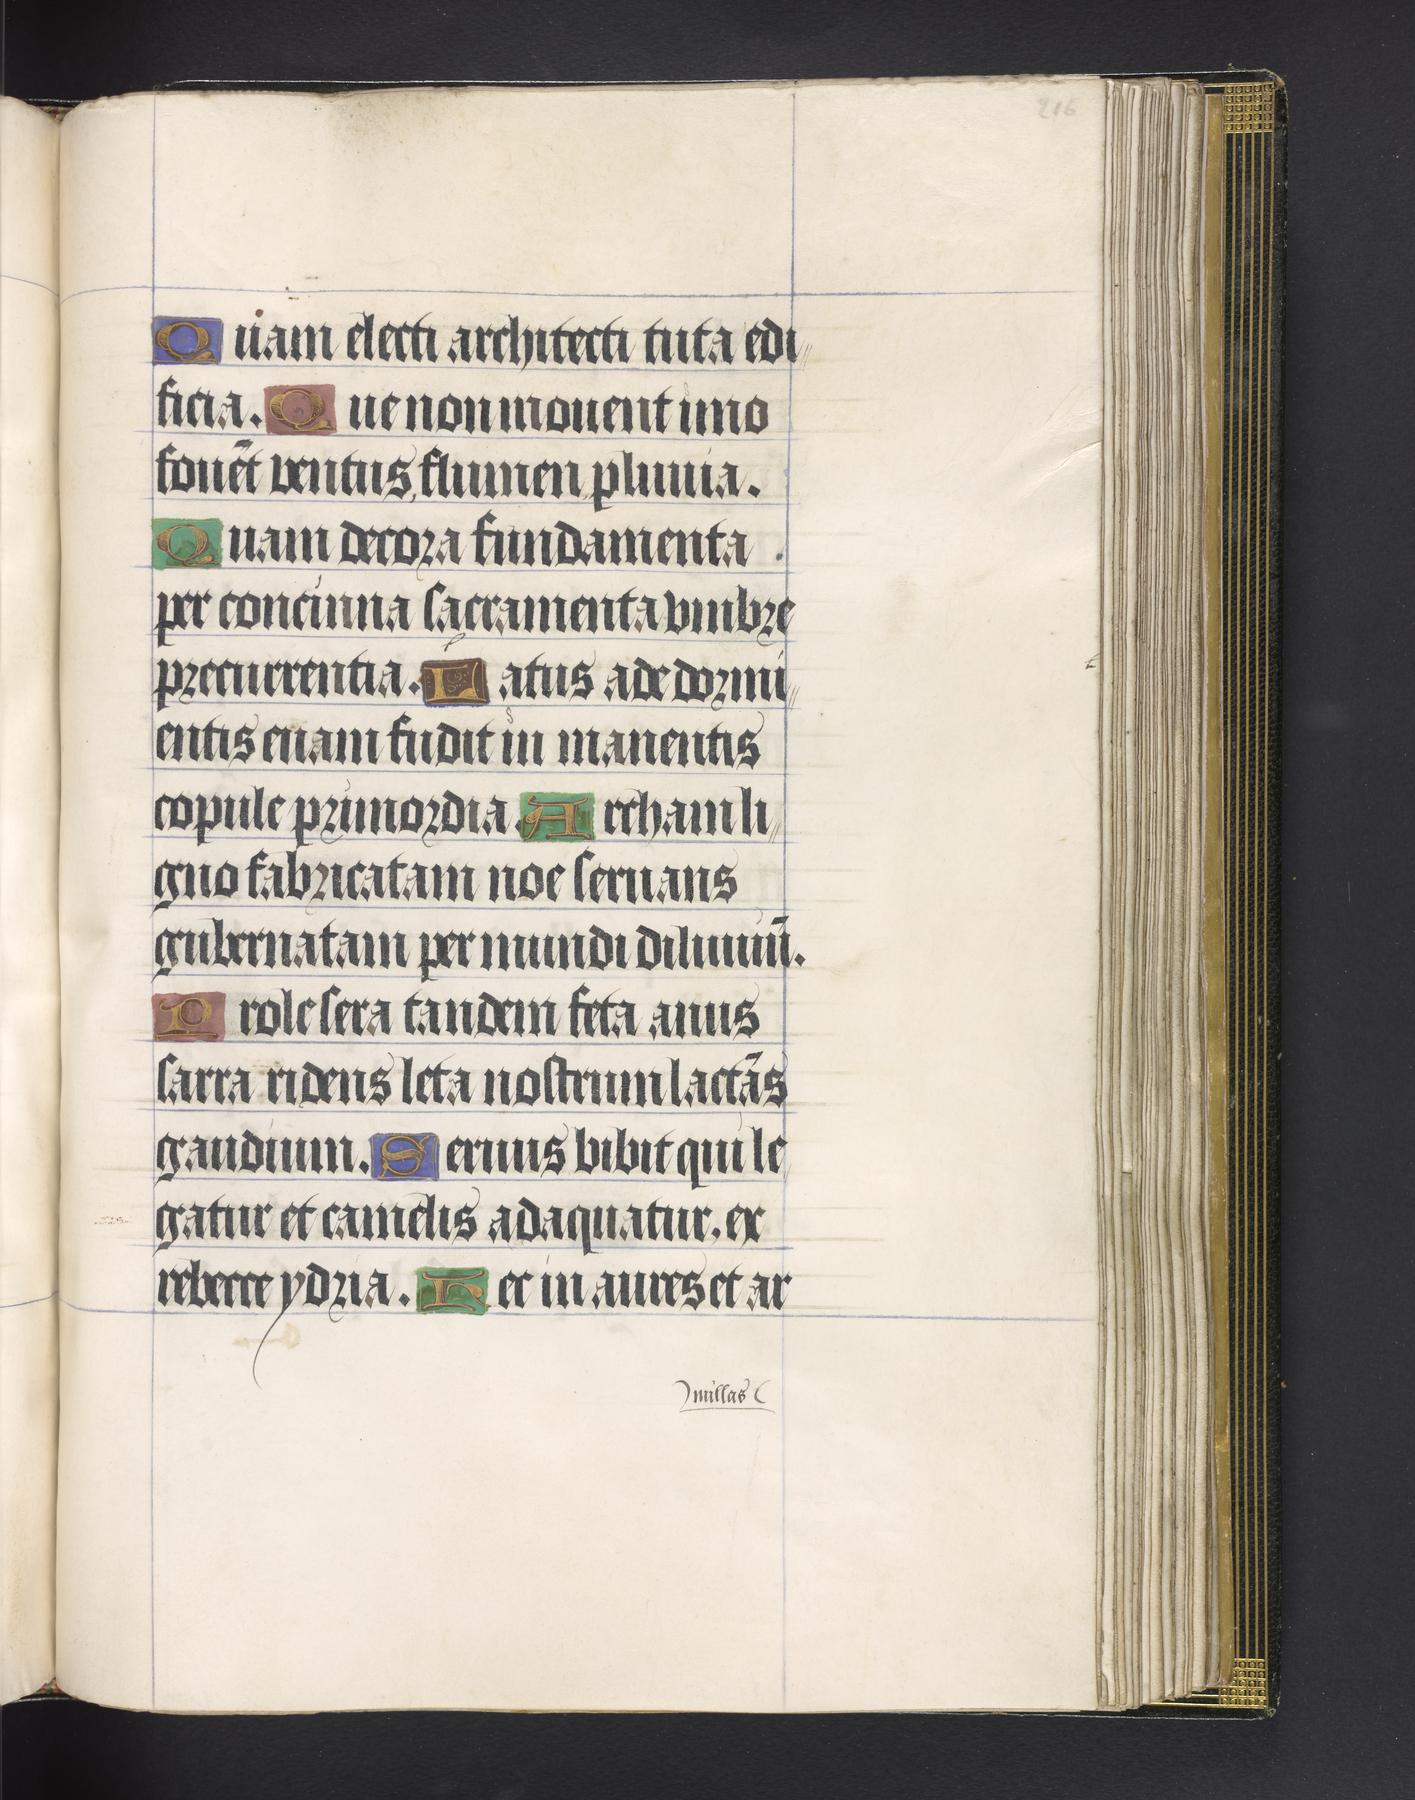 216
Quam electi architecti tuta edi
ficia. Que non mouent imo
fouēt ventus, flumen pluuia.
Quam decora fundamenta .
per concinna sacramenta vmbre
precurrentia. Latus ade dormi
entis euam fudit in manentis
copule primordia. Archam li
gno fabricatam noe seruans
gubernatam per mundi diluuiū.
Prole sera tandem feta anus
sarra ridens leta nostrum lactās
gaudium. Seruus bibit qui le
gatur et camelis adaquatur. ex
rebecce ydria. Hec in aures et ar
millas